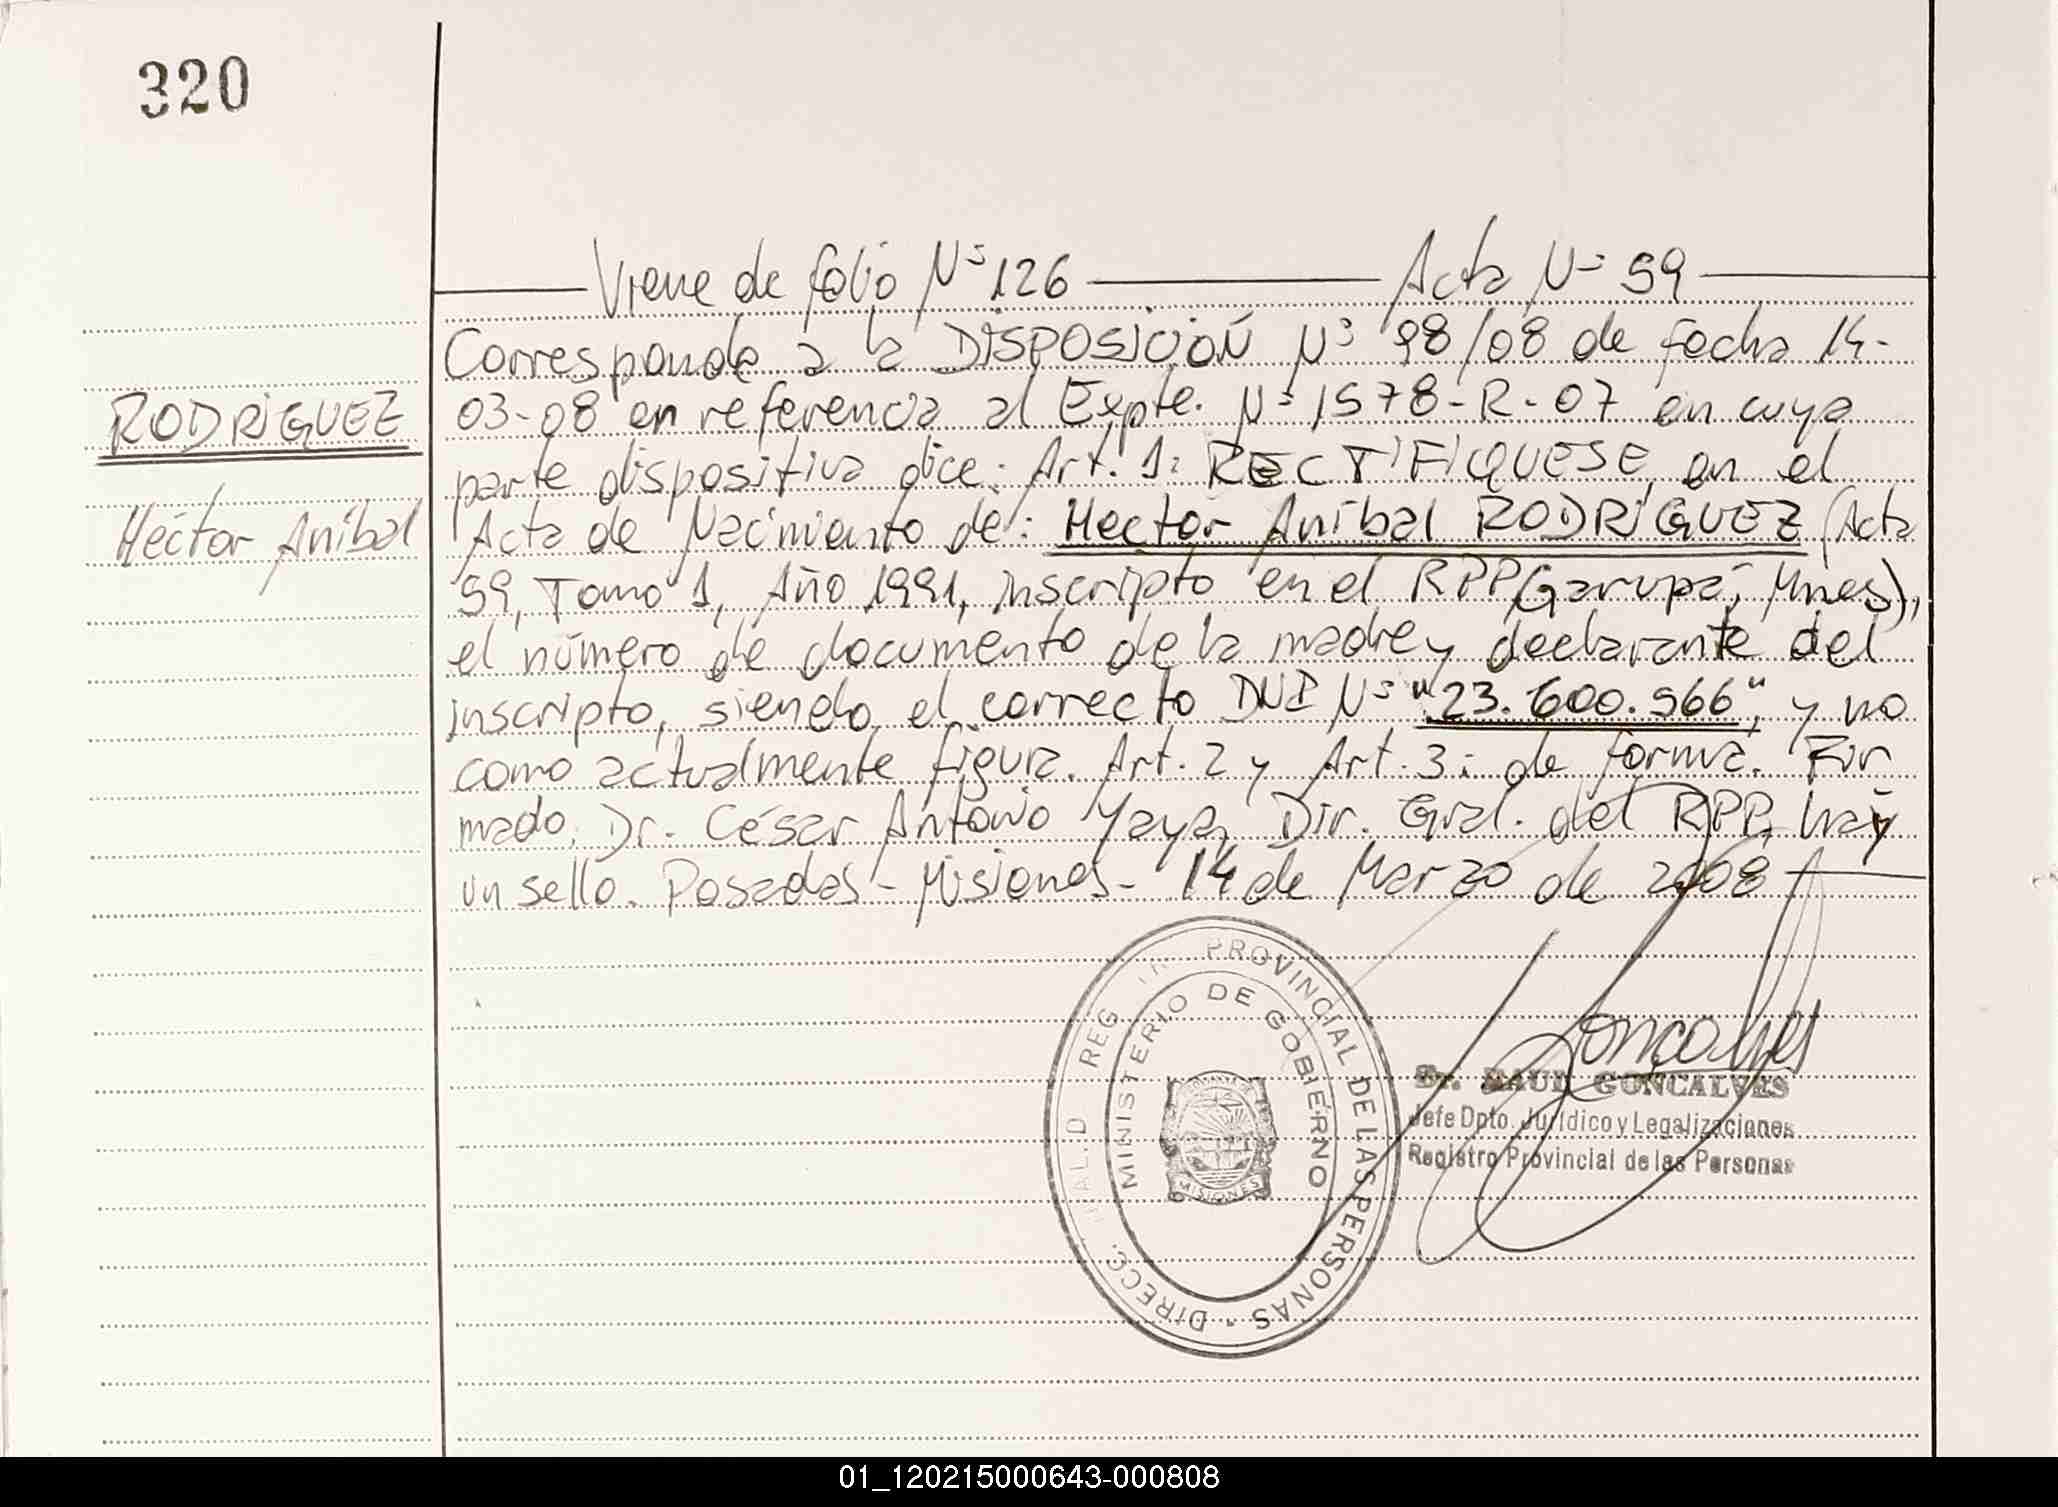 320
Viene de folio Nº 126 Acta Nº 59
Corresponde a la DISPOSICIÓN Nº 98/08 de fecha 14-
RODRIGUEZ
03-08 en referencia al Expte. Nº 1578-R-07 en cuya
parte dispositiva dice: Art. 1: RECTIFIQUESE, en el
Héctor Aníbal
Acta de Nacimiento de: Hector Aníbal RODRIGUEZ (Acta
59, Tomo 1, Año 1991, inscripto en el RPP, Garupá, Mnes),
el número de documento de la madre y declarante del
inscripto, siendo el correcto DNI Nº "23.600.566", y no
como actualmente figura. Art. 2 y Art. 3: de forma. Fir
mado: Dr. César Antonio Yaya, Dir. Gral. del RPP, hay
un sello. Posadas - Misiones - 14 de Marzo de 2008
DIRECC. GRAL. D REG PROVINCIAL DE LAS PERSONAS
MINISTERIO DE GOBIERNO
MISIONES
Goncalves
Sr. RAUL GONCALVES
Jefe Dpto. Jurídico y Legalizaciones
Registro Provincial de las Personas
01_120215000643-000808